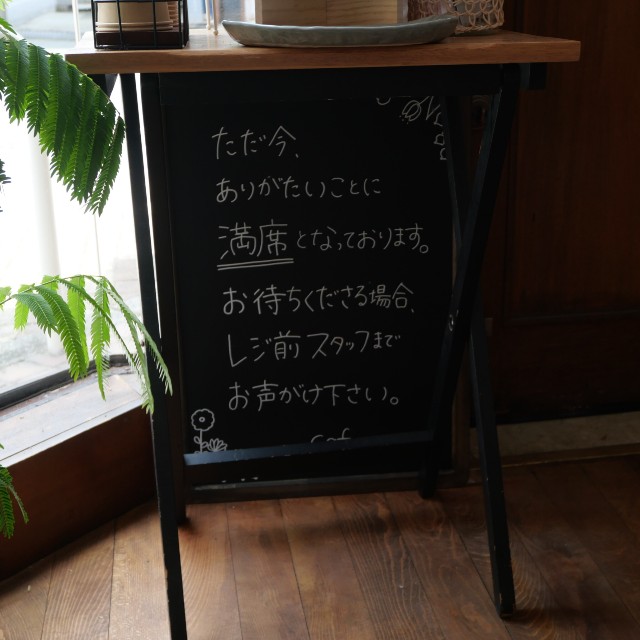 ただ今、
ありがたいことに
満席となっております。
お待ちくださる場合、
レジ前スタッフまで
お声がけ下さい。